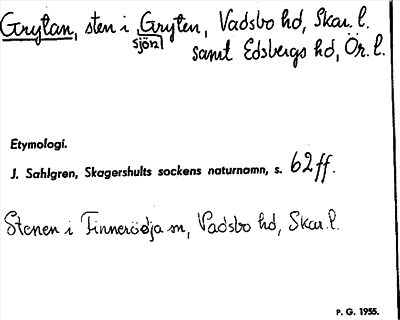 Grytan, sten i Gryten, Vadsbo hd, Skar. l.
sjön
samt Edsbergs hd, Ör. l.
Etymologi.
J. Sahlgren, Skagershults sockens naturnamn, s. 62 ff.
Stenen i Finnerödja sn, Vadsbo hd, Skar. l.
P. G. 1955.